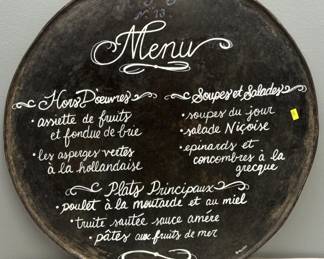 Menu
Hors D'oeuvres
• assiette de fruits
et fondue de brie
• les asperges vertes
à la hollandaise
Soupes et Salades
• soupes du jour
• salade Niçoise
• epinards et
concombres à la
grecque
Plats Principaux
• poulet à la moutarde et au miel
• truite sautée sauce amère
• pâtes aux fruits de mer